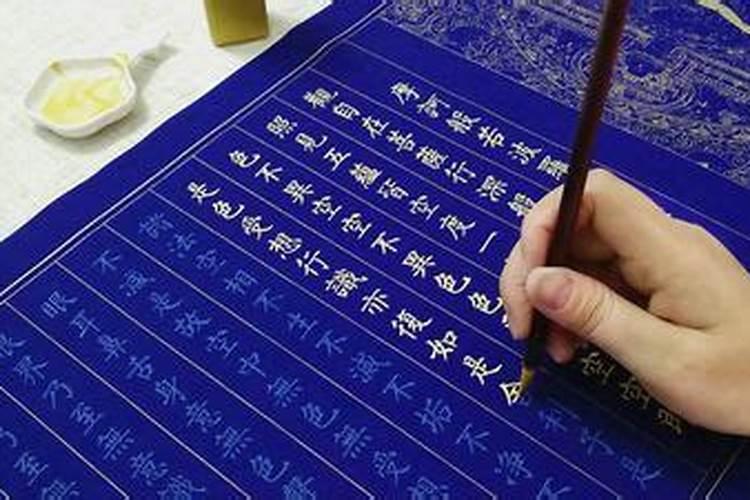 摩訶般若波羅
觀自在菩薩行深般
照見五蘊皆空度一
色不異空空不異色色空空即
是色受想行識亦復如是舍利子是
諸法空相不生不滅不垢不淨不
減是故空中無色無受想
眼耳鼻舌身意無色聲
眼界乃至無意識
乃至無